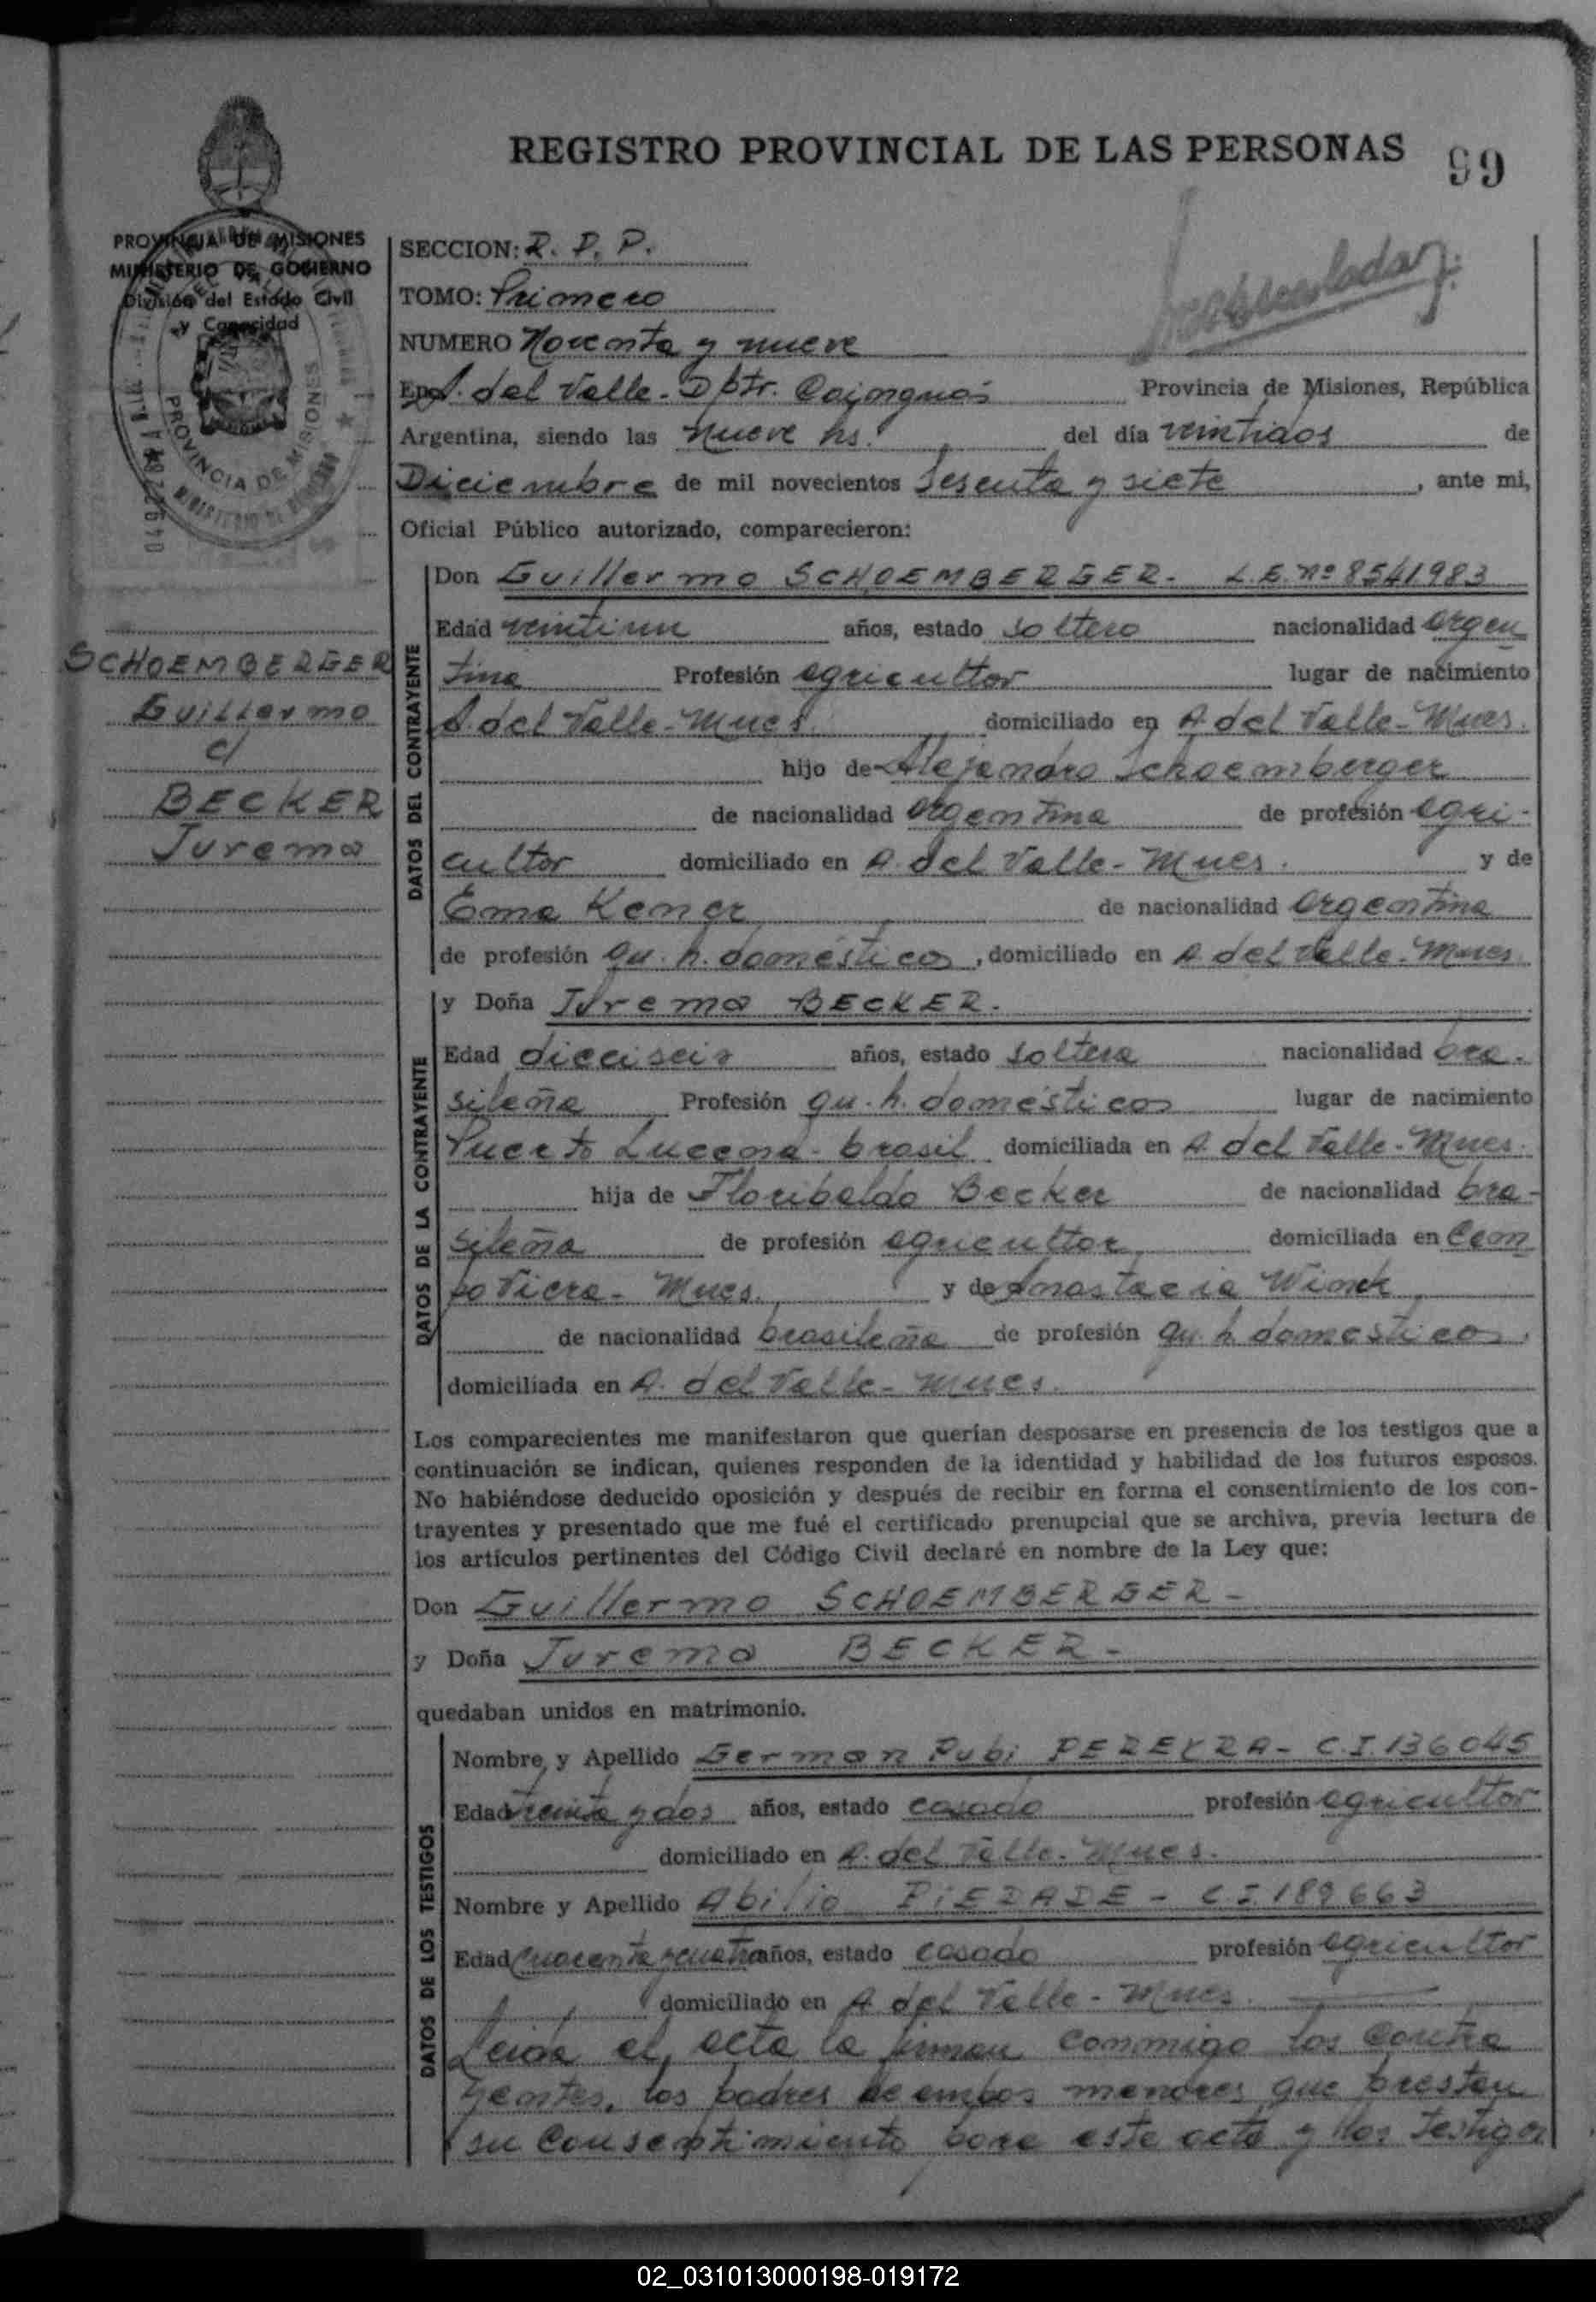 REGISTRO PROVINCIAL DE LAS PERSONAS
99
PROVINCIA DE MISIONES
MINISTERIO DE GOBIERNO
División del Estado Civil
y Capacidad
PROVINCIA DE MISIONES
SCHOEMBERGER
Guillermo
c/
BECKER
Jurema
SECCION: R. P. P.
TOMO: Primero
NUMERO Noventa y nueve
En A. del Valle - Dptr. Cainguás Provincia de Misiones, República
Argentina, siendo las nueve hs. del día veintidos de
Diciembre de mil novecientos Sesenta y siete, ante mi,
Oficial Público autorizado, comparecieron:
DATOS DEL CONTRAYENTE
Don Guillermo SCHOEMBERGER - L.E. nº 8541983
Edad veintiun años, estado soltero nacionalidad argen
tina Profesión agricultor lugar de nacimiento
A. del Valle - Mnes. domiciliado en A. del Valle - Mnes.
hijo de Alejandro Schoemberger
de nacionalidad argentina de profesión agri-
cultor domiciliado en A. del Valle - Mnes. y de
Ema Kener de nacionalidad argentina
de profesión qu. h. domésticos, domiciliado en A. del Valle - Mnes
DATOS DE LA CONTRAYENTE
y Doña Jurema BECKER.
Edad dieciseis años, estado soltera nacionalidad bra-
sileña Profesión qu. h. domésticos lugar de nacimiento
Puerto Lucena - brasil domiciliada en A. del Valle - Mnes.
hija de Floribaldo Becker de nacionalidad bra-
sileña de profesión agricultor domiciliada en Cam
po Viera - Mnes. y de Anastacia Winck
de nacionalidad brasileña de profesión qu. h. domesticos.
domiciliada en A. del Valle - Mnes.
Los comparecientes me manifestaron que querían desposarse en presencia de los testigos que a
continuación se indican, quienes responden de la identidad y habilidad de los futuros esposos.
No habiéndose deducido oposición y después de recibir en forma el consentimiento de los con-
trayentes y presentado que me fué el certificado prenupcial que se archiva, previa lectura de
los artículos pertinentes del Código Civil declaré en nombre de la Ley que:
Don Guillermo SCHOEMBERGER -
y Doña Jurema BECKER -
quedaban unidos en matrimonio.
DATOS DE LOS TESTIGOS
Nombre y Apellido German Pubi PEREYRA - C.I. 136045
Edad treinta y dos años, estado casado profesión agricultor
domiciliado en A. del Valle - Mnes.
Nombre y Apellido Abilio PIEDADE - C.I. 189663
Edad cuarenta y cuatro años, estado casado profesión agricultor
domiciliado en A. del Valle - Mnes.
Leida el acta la firman conmigo los contra
yentes, los padres de ambos menores que prestan
su consentimiento para este acto y los testigos
02_031013000198-019172